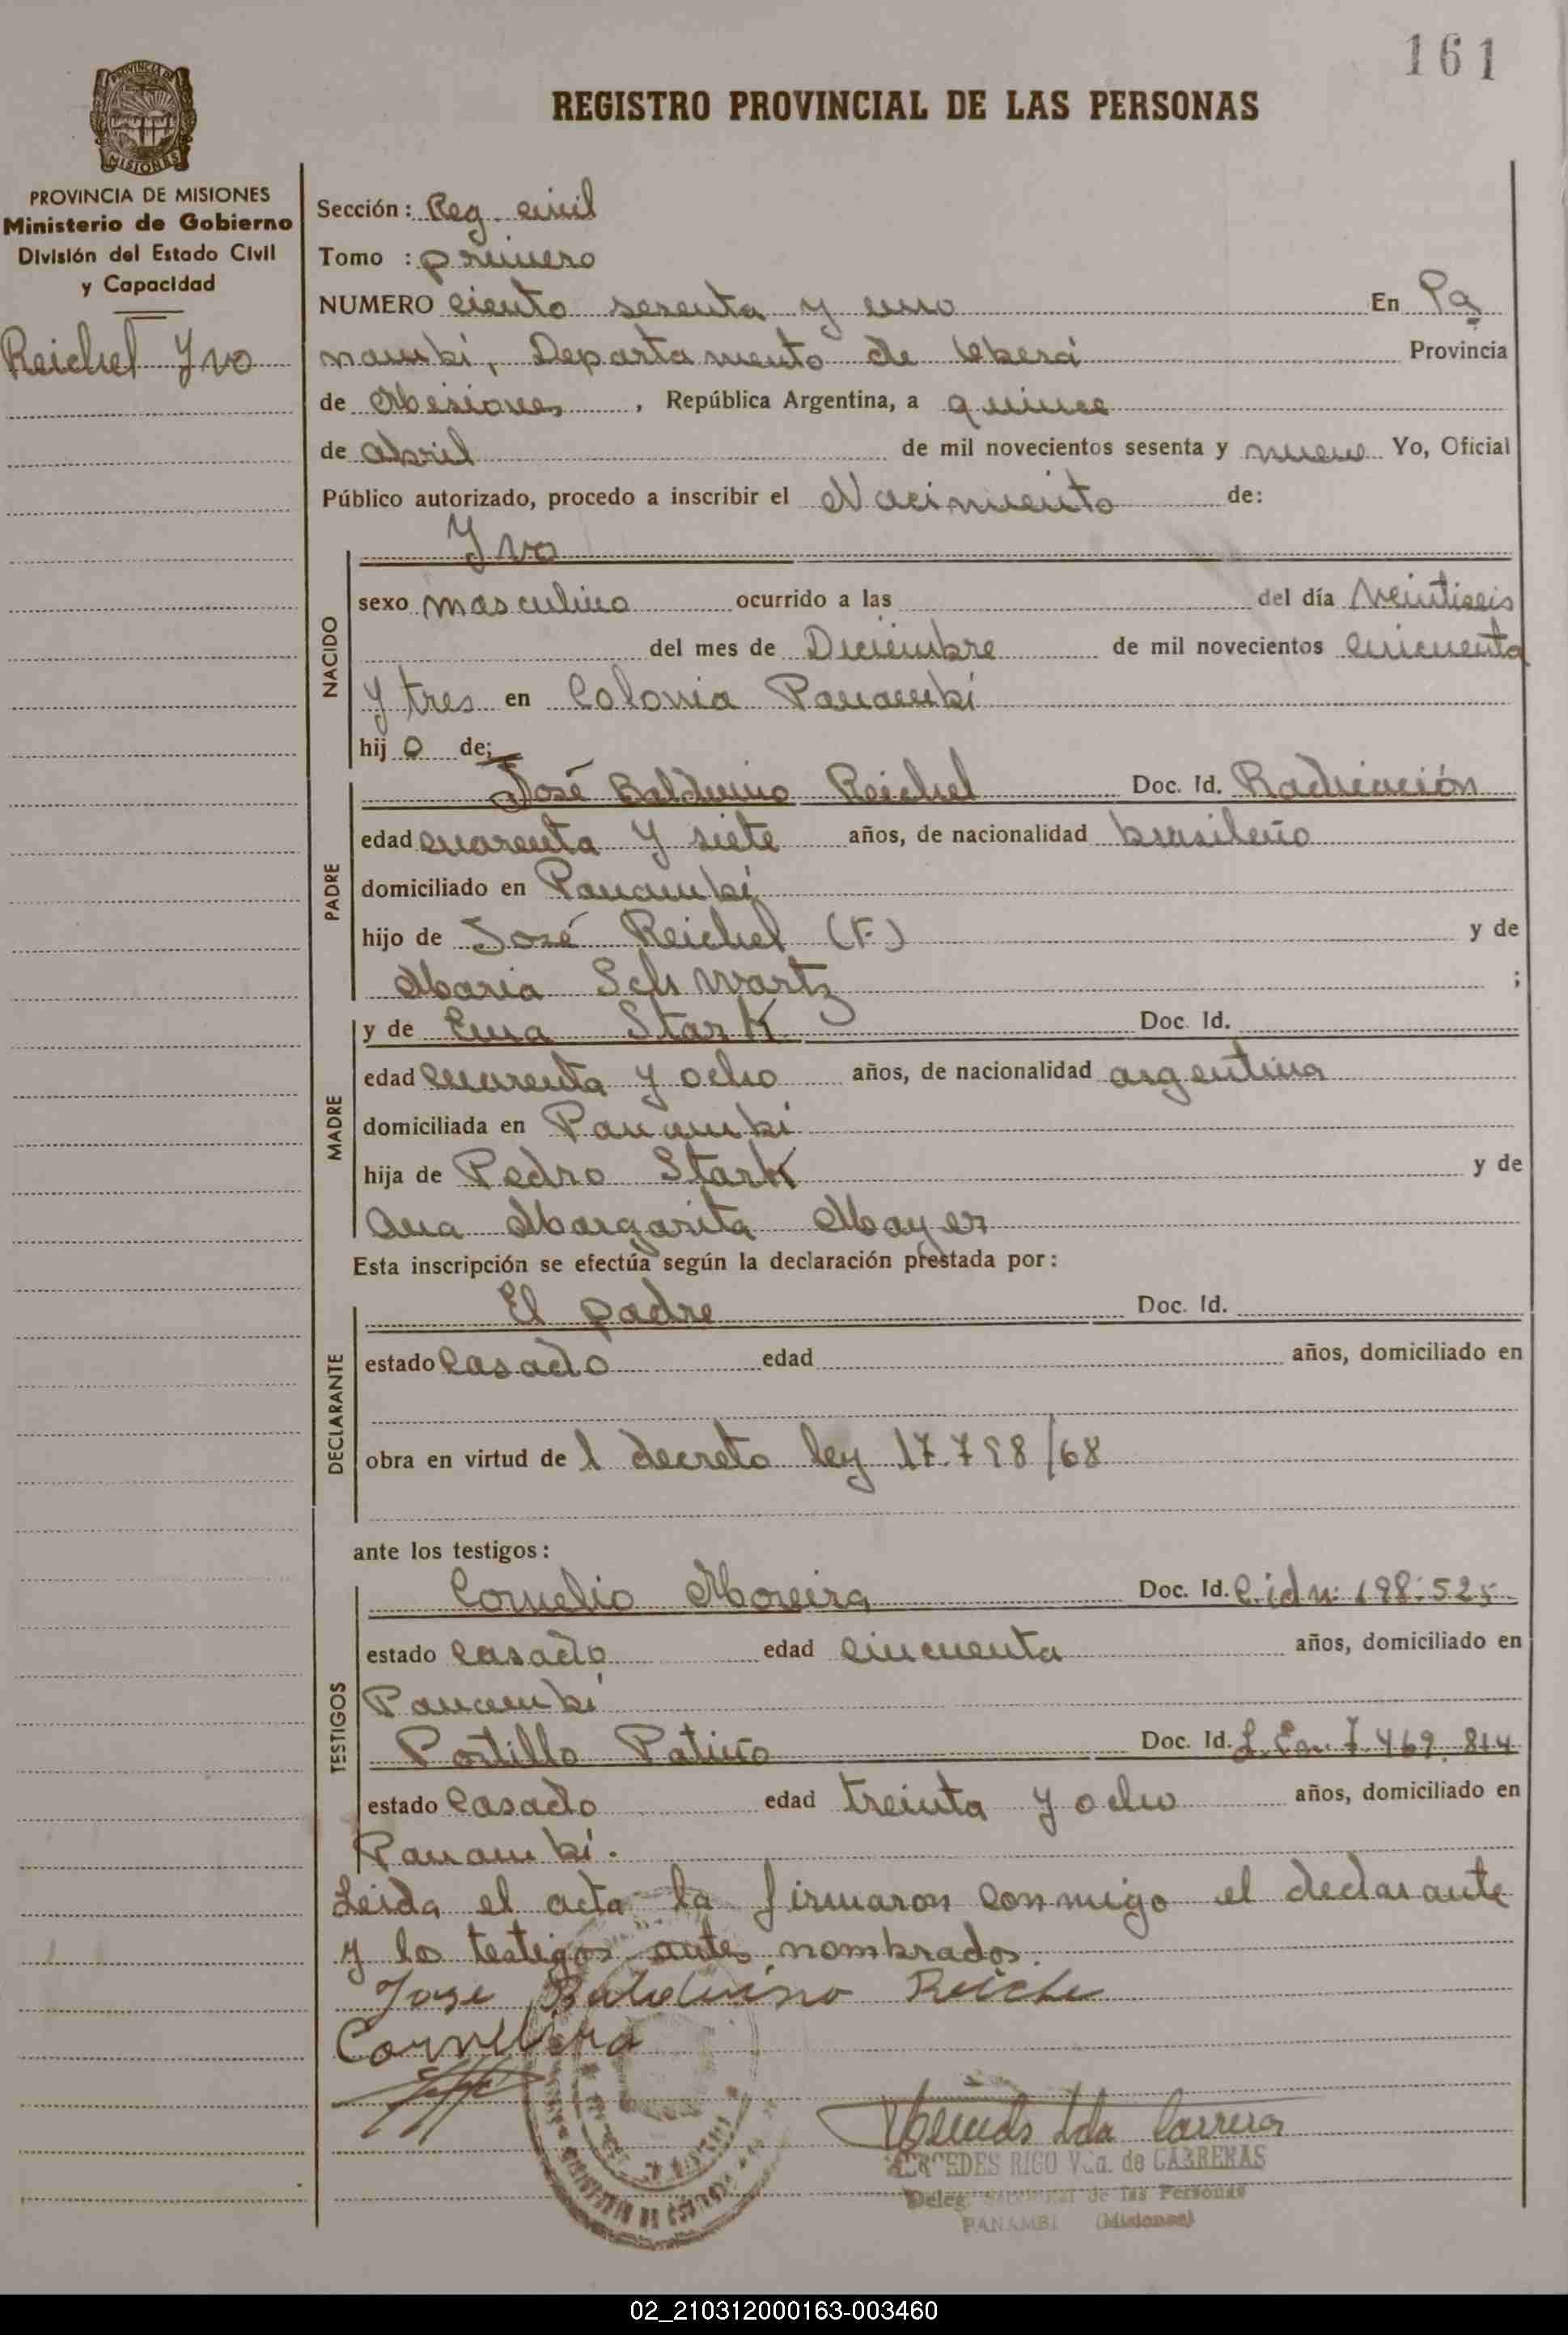 161
REGISTRO PROVINCIAL DE LAS PERSONAS
PROVINCIA DE
MISIONES
PROVINCIA DE MISIONES
Ministerio de Gobierno
División del Estado Civil
y Capacidad
Reichel Yvo
Sección: Reg. civil
Tomo : primero
NUMERO ciento sesenta y uno En Pa
nambí, Departamento de Oberá Provincia
de Misiones, República Argentina, a quince
de abril de mil novecientos sesenta y nueve Yo, Oficial
Público autorizado, procedo a inscribir el Nacimiento de:
NACIDO
Yvo
sexo masculino ocurrido a las del día veintiseis
del mes de Diciembre de mil novecientos cincuenta
y tres en Colonia Panambí
hij o de;
PADRE
José Balduino Reichel Doc. Id. Radicación
edad cuarenta y siete años, de nacionalidad brasileño
domiciliado en Panambí
hijo de José Reichel (F.) y de
Maria Schwartz ;
MADRE
y de Ema Stark Doc. Id.
edad cuarenta y ocho años, de nacionalidad argentina
domiciliada en Panambí
hija de Pedro Stark y de
Ana Margarita Mayer
Esta inscripción se efectúa según la declaración prestada por:
DECLARANTE
El padre Doc. Id.
estado casado edad años, domiciliado en
obra en virtud de l decreto ley 17.798/68
ante los testigos:
TESTIGOS
Cornelio Moreira Doc. Id. C.idn: 198.525
estado casado edad cincuenta años, domiciliado en
Panambí
Portillo Patiño Doc. Id. L.En. 7.469.814
estado casado edad treinta y ocho años, domiciliado en
Panambí.
Leida el acta la firmaron conmigo el declarante
y los testigos antes nombrados.
Jose Balduino Reiche
MERCEDES RIGO Vda. de CABRERAS
de las Personas
PANAMBI (Misiones)
02_210312000163-003460